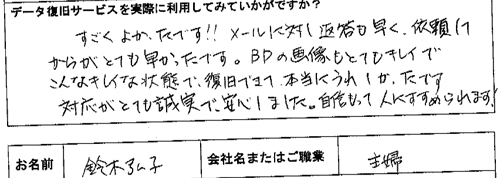 データ復旧サービスを実際に利用してみていかがですか？
すごくよかったです!! メールに対し返答も早く、依頼して
からがとても早かったです。BDの画像もとてもキレイで
こんなキレイな状態で、復旧できて、本当にうれしかったです
対応がとても誠実で、安心しました。自信もって人にすすめられます!
お名前 鈴木 子 会社名またはご職業 主婦